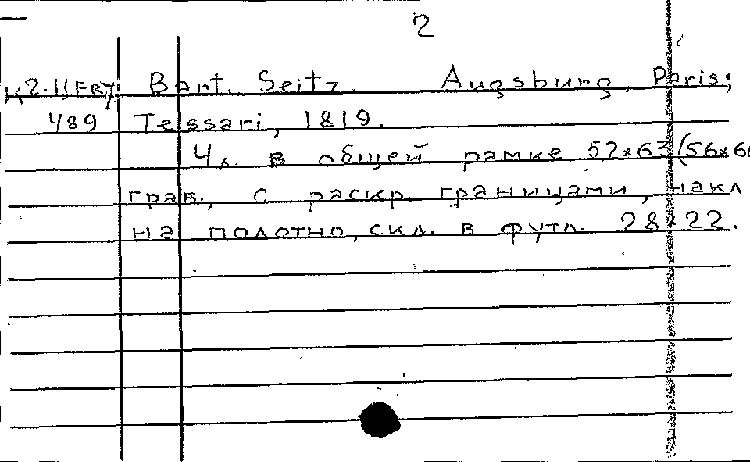 2
Bart. Seitz. Augsburg, Paris;
489 Tessari, 1819.
4 л. в общей рамке 52×63 (56×66
грав., с раскр. границами, накл
на полотно, скл. в футл. 28×22.